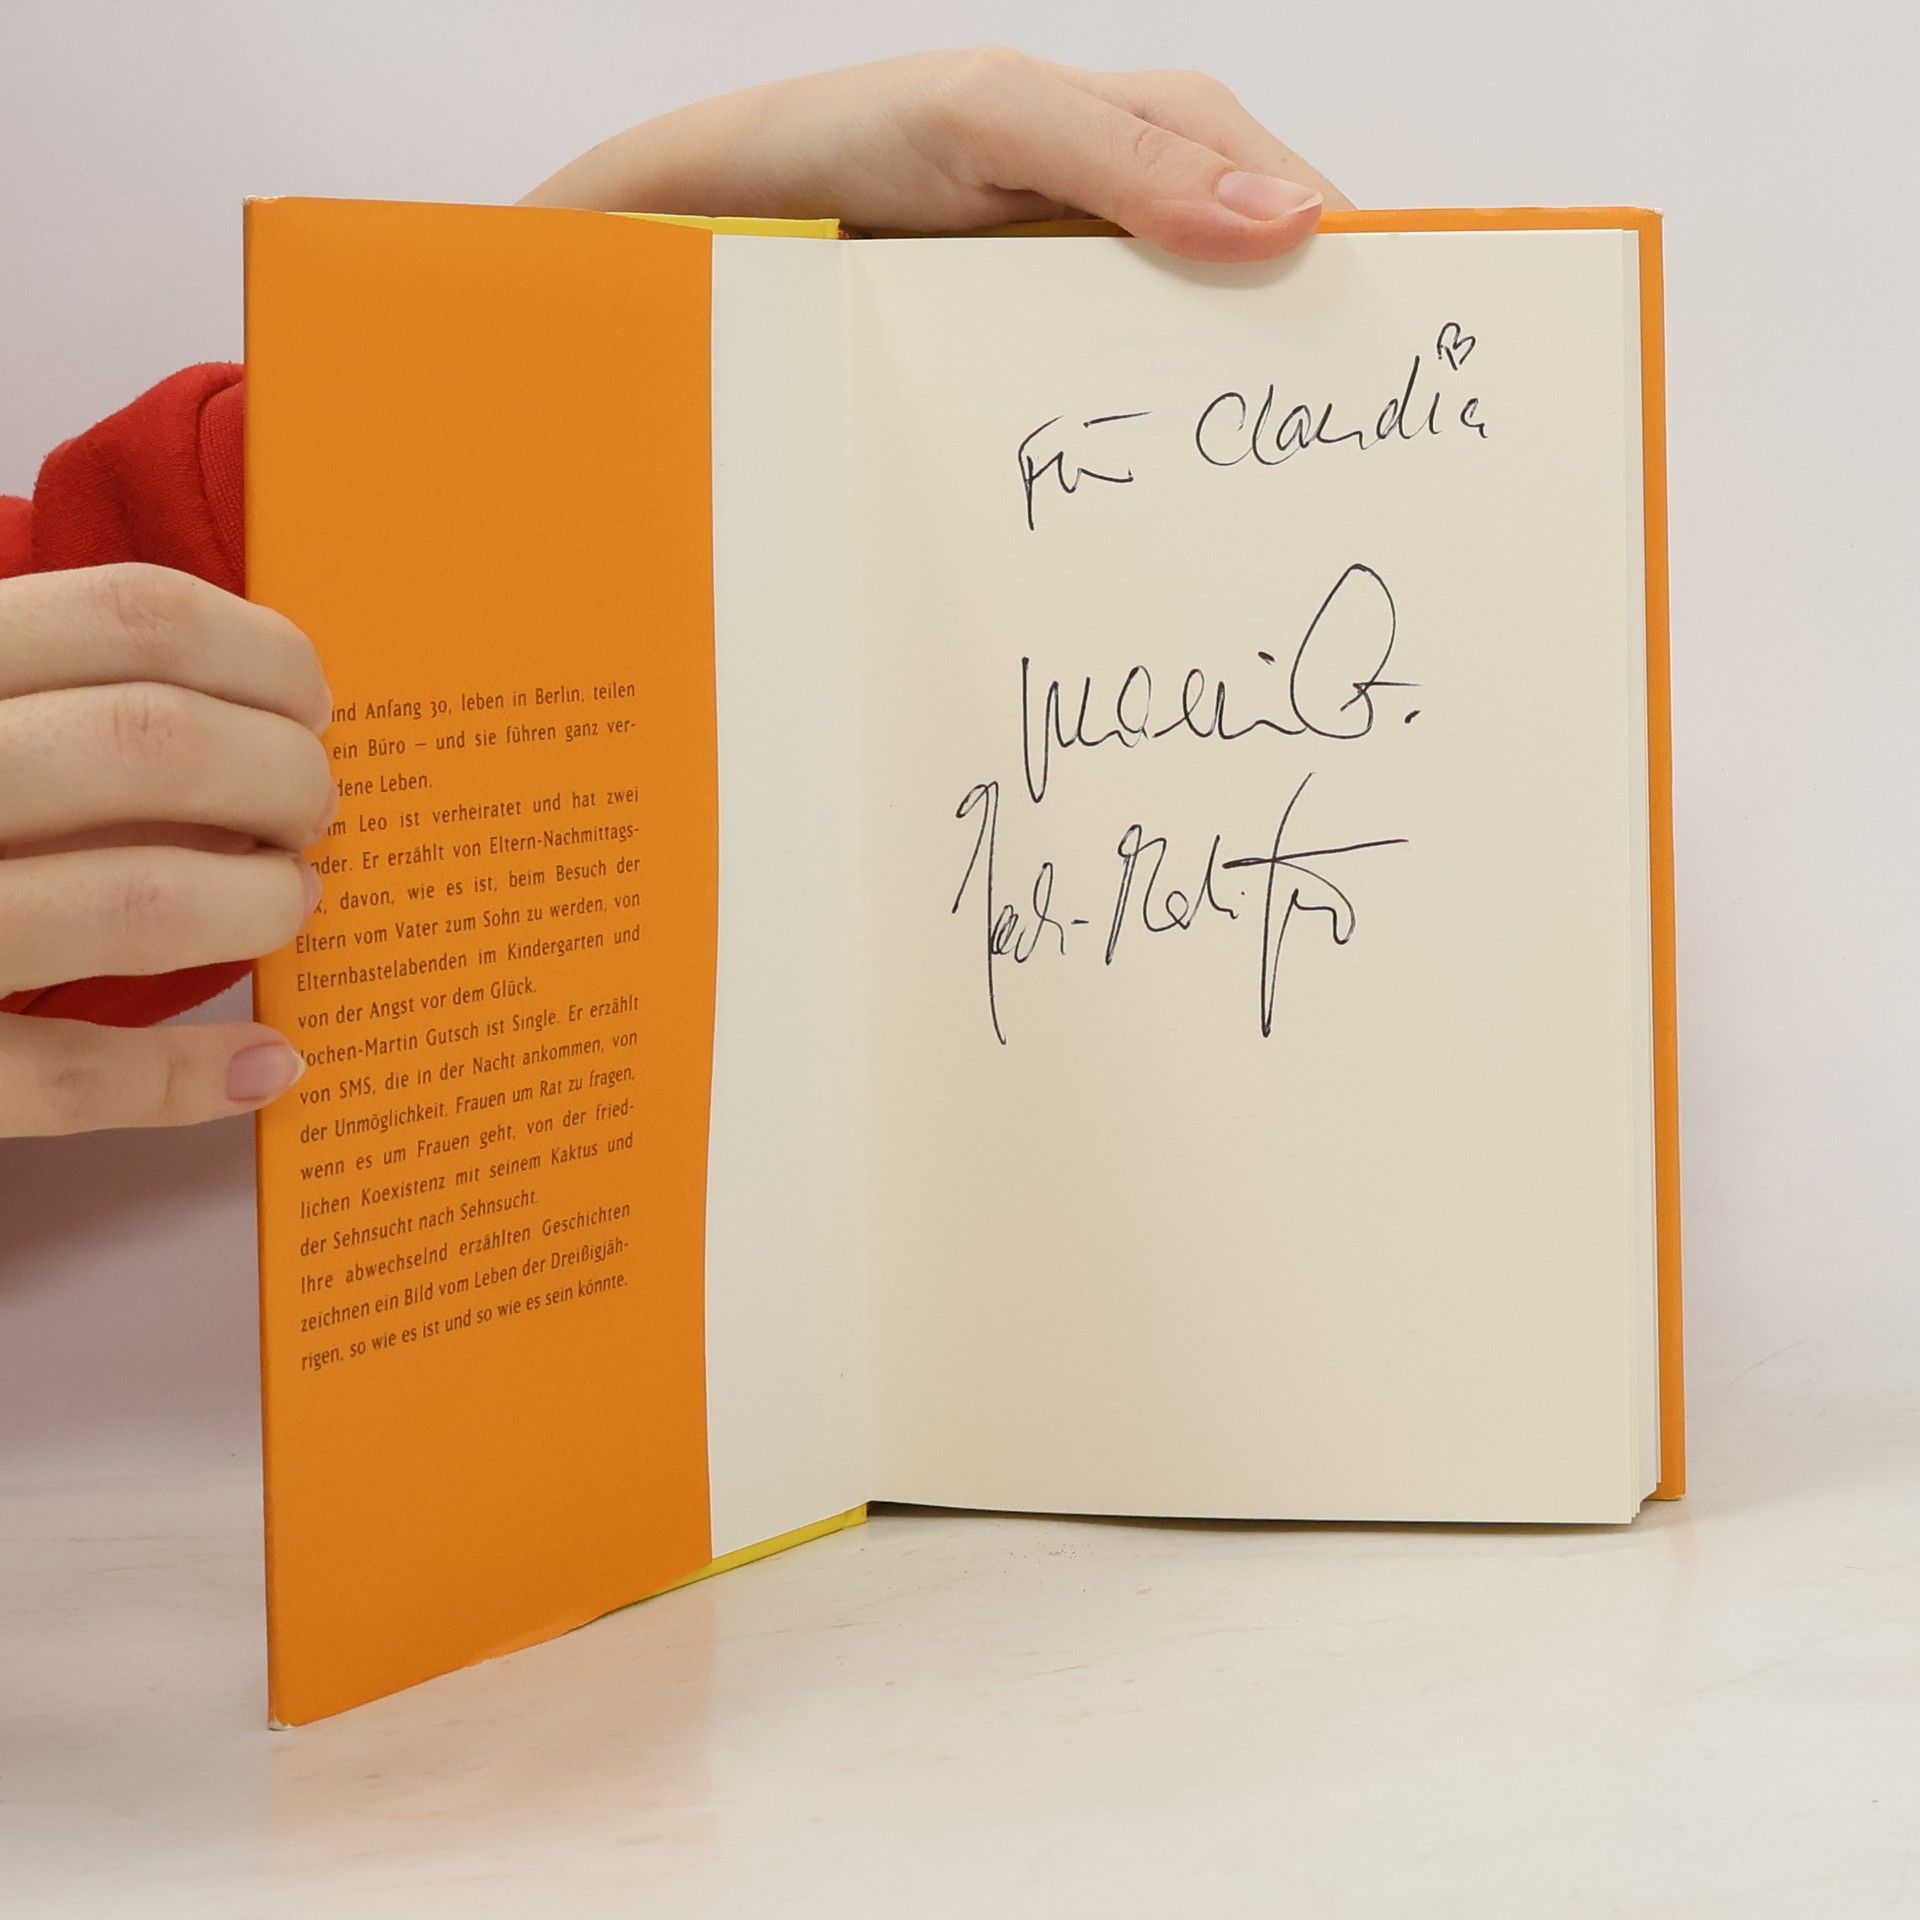 ind Anfang 30, leben in Berlin, teilen
ein Büro – und sie führen ganz ver-
dene Leben.
im Leo ist verheiratet und hat zwei
nder. Er erzählt von Eltern-Nachmittags-
x, davon, wie es ist, beim Besuch der
Eltern vom Vater zum Sohn zu werden, von
Elternbastelabenden im Kindergarten und
von der Angst vor dem Glück.
Jochen-Martin Gutsch ist Single. Er erzählt
von SMS, die in der Nacht ankommen, von
der Unmöglichkeit, Frauen um Rat zu fragen,
wenn es um Frauen geht, von der fried-
lichen Koexistenz mit seinem Kaktus und
der Sehnsucht nach Sehnsucht.
Ihre abwechselnd erzählten Geschichten
zeichnen ein Bild vom Leben der Dreißigjäh-
rigen, so wie es ist und so wie es sein könnte.
Für Claudia